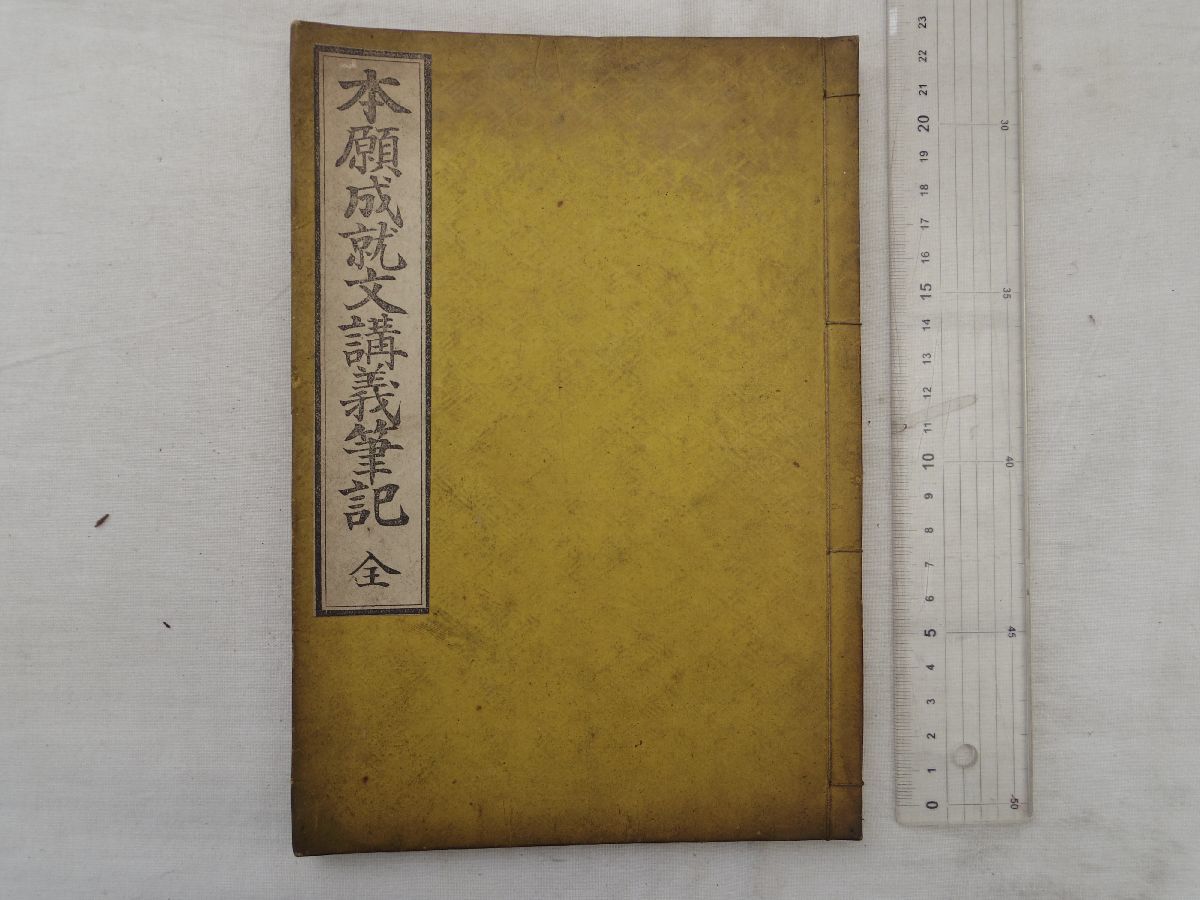 本願成就文講義筆記 全
23
22
21
20
19
18
17
16
15
14
13
12
11
10
9
8
7
6
5
4
3
2
1
0
30
35
40
45
50